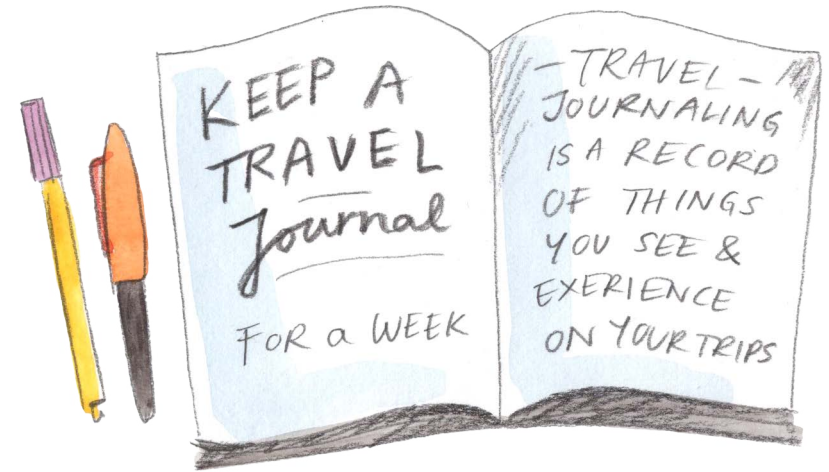 KEEP A
TRAVEL
Journal
FOR a WEEK
- TRAVEL -
JOURNALING
IS A RECORD
OF THINGS
YOU SEE &
EXERIENCE
ON YOUR TRIPS